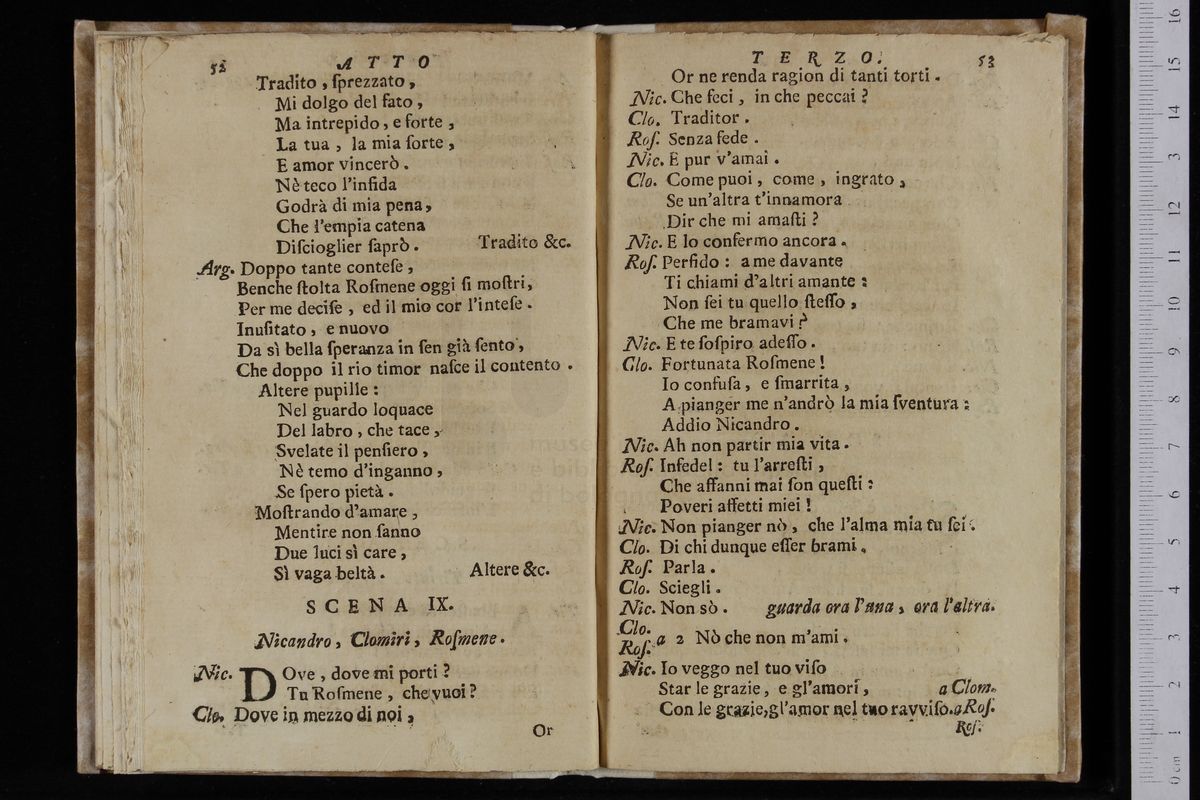 52 ATTO
Tradito , ſprezzato ,
Mi dolgo del fato ,
Ma intrepido , e forte ,
La tua , la mia ſorte ,
E amor vincerò .
Nè teco l'infida
Godrà di mia pena ,
Che l'empia catena
Diſcioglier ſaprò . Tradito &c.
Arg. Doppo tante conteſe ,
Benche ſtolta Roſmene oggi ſi moſtri ,
Per me deciſe , ed il mio cor l'inteſe .
Inuſitato , e nuovo
Da sì bella ſperanza in ſen già ſento ,
Che doppo il rio timor naſce il contento .
Altere pupille :
Nel guardo loquace
Del labro , che tace ,
Svelate il penſiero ,
Nè temo d'inganno ,
Se ſpero pietà .
Moſtrando d'amare ,
Mentire non ſanno
Due luci sì care ,
Sì vaga beltà . Altere &c.
SCENA IX.
Nicandro , Clomiri , Roſmene .
Nic. DOve , dove mi porti ?
Tu Roſmene , che vuoi ?
Clo. Dove in mezzo di noi ,
Or
TERZO. 53
Or ne renda ragion di tanti torti .
Nic. Che feci , in che peccai ?
Clo. Traditor .
Roſ. Senza fede .
Nic. E pur v'amai .
Clo. Come puoi , come , ingrato ,
Se un'altra t'innamora
Dir che mi amaſti ?
Nic. E lo confermo ancora .
Roſ. Perfido : a me davante
Ti chiami d'altri amante :
Non ſei tu quello ſteſſo ,
Che me bramavi ?
Nic. E te ſoſpiro adeſſo .
Clo. Fortunata Roſmene !
Io confuſa , e ſmarrita ,
A pianger me n'andrò la mia ſventura :
Addio Nicandro .
Nic. Ah non partir mia vita .
Roſ. Infedel : tu l'arreſti ,
Che affanni mai ſon queſti :
Poveri affetti miei !
Nic. Non pianger nò , che l'alma mia tu ſei .
Clo. Di chi dunque eſſer brami .
Roſ. Parla .
Clo. Sciegli .
Nic. Non sò . guarda ora l'una , ora l'altra.
Clo.
Roſ. a 2 Nò che non m'ami .
Nic. Io veggo nel tuo viſo
Star le grazie , e gl'amori , a Clom.
Con le grazie, gl'amor nel tuo ravviſo. a Roſ.
Roſ.
0 cm 1 2 3 4 5 6 7 8 9 10 11 12 13 14 15 16